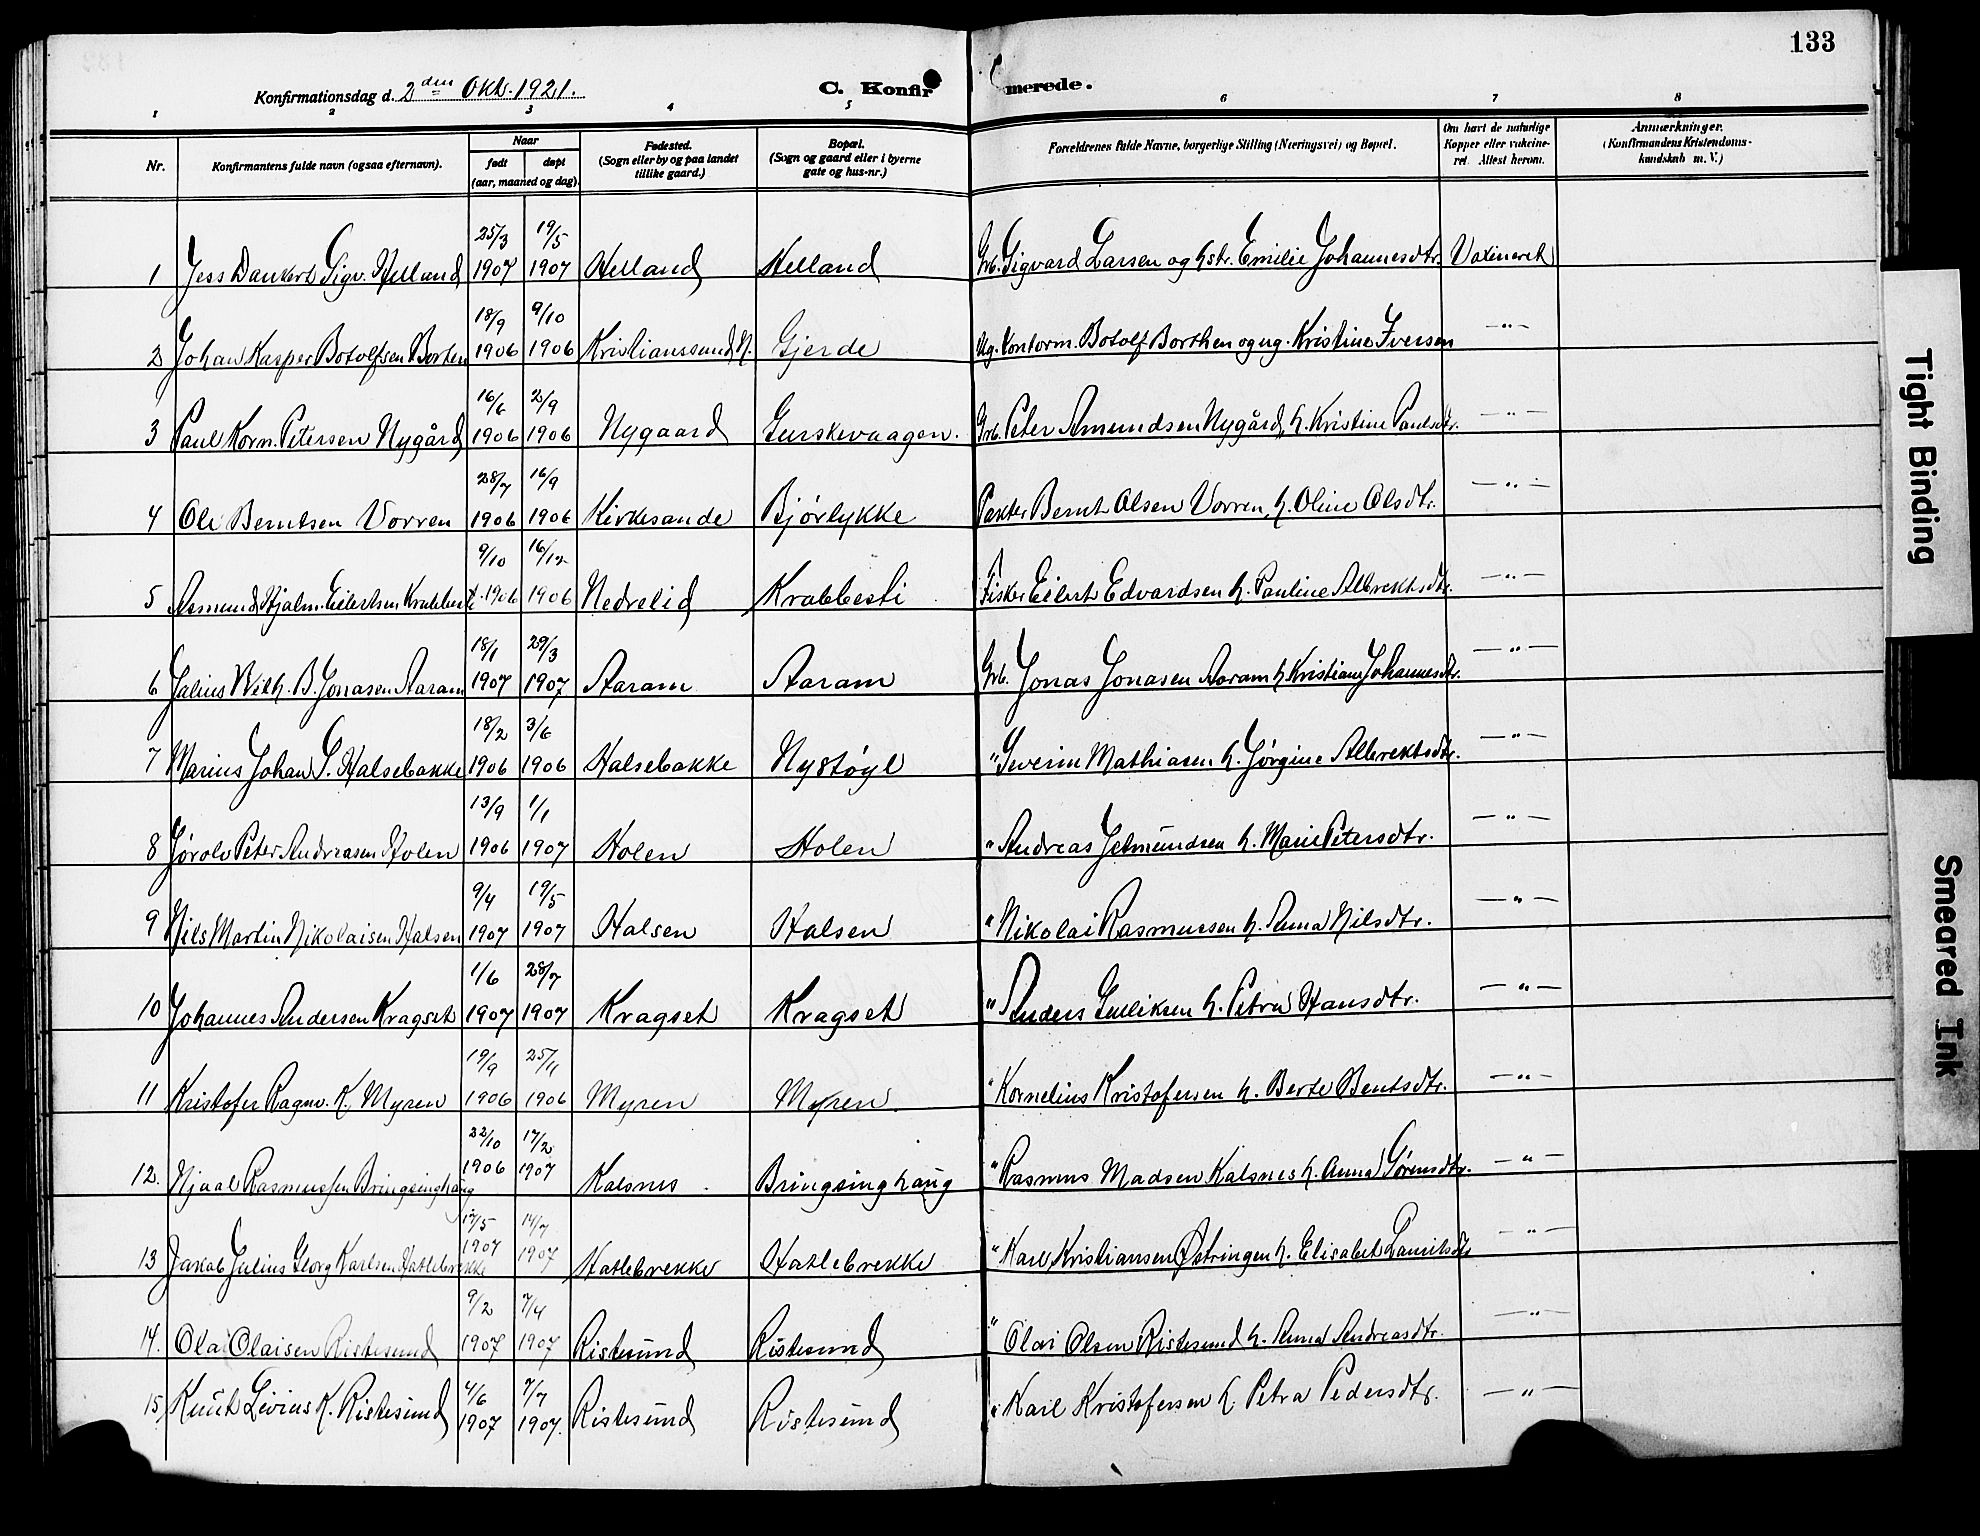 133
Konfirmationsdag d. 2den Okt. 1921.
C. Konfirmerede.
1 2 3 4 5 6 7 8
Nr.
Konfirmantens fulde navn (ogsaa efternavn).
Naar
født døpt
(aar, maaned og dag)
Fødested.
(Sogn eller by og paa landet
tillike gaard.)
Bopæl.
(Sogn og gaard eller i byerne
gate og hus-nr.)
Forældrenes fulde Navne, borgerlige Stilling (Næringsvei) og Bopæl.
Om havt de naturlige
Kopper eller vakcine-
ret. Attest herom.
Anmærkninger.
(Konfirmandens Kristendoms-
kundskab m. V.)
25/3 19/5
1 Jess Dankert Sigv. Helland 1907 1907 Helland Helland Grb. Sigvard Larsen og hstr. Emilie Johannesdtr. Vaxineret
18/9 9/10
2 Johan Kasper Botolfsen Borthen 1906 1906 Kristianssund N. Gjerde Ug. Kontorm. Botolf Borthen og ug. Kristine Iversen —"—
16/6 2/9
3 Paul Korn. Petersen Nygård 1906 1906 Nygaard Gurskevaagen. Grb. Peter Amundsen Nygård, h. Kristine Paulsdtr. —"—
28/7 16/9
4 Ole Berntsen Vorren 1906 1906 Kirkesande Bjørlykke Pakter Bernt Olsen Vorren, h. Oline Olsdtr. —"—
9/10 16/12
5 Asmund Hjalm. Eilertsen Krabbesti 1906 1906 Nedrelid Krabbesti Fisker Eilert Edvardsen h. Pauline Albrektsdtr. —"—
18/1 29/3
6 Julius Wilh. B. Jonasen Aaram 1907 1907 Aaram Aaram Grb. Jonas Jonasen Aaram h. Kristiane Johannesdtr. —"—
18/2 3/6
7 Marius Johan S. Halsebakke 1906 1906 Halsebakke Nystøyl " Severin Mathiasen h. Jørgine Albrektsdtr. —"—
13/9 1/1
8 Jørolv Peter Andreasen Holen 1906 1907 Holen Holen " Andreas Jetmundsen h. Marie Petersdtr. —"—
9/4 19/5
9 Nils Martin Nikolaisen Halsen 1907 1907 Halsen Halsen " Nikolai Rasmussen h. Anna Nilsdtr. —"—
1/6 28/7
10 Johannes Andersen Kragset 1907 1907 Kragset Kragset " Anders Gulliksen h. Petra Hansdtr. —"—
19/9 25/11
11 Kristofer Ragnv. K. Myren 1906 1906 Myren Myren. " Kornelius Kristofersen h. Berte Bentsdtr. —"—
22/10 17/2
12. Njaal Rasmussen Bringsinghaug 1906 1907 Kalsnes Bringsinghaug " Rasmus Madsen Kalsnes h. Anna Sørensdtr. —"—
17/5 14/7
13 Jakob Julius Georg Karlsen Hatlebrekke 1907 1907 Hatlebrekke Hatlebrekke " Karl Kristiansen Østringen h. Elisabet Lauritsdtr —"—
9/2 7/4
14. Ola Olaisen Ristesund 1907 1907 Ristesund Ristesund " Olai Olsen Ristesund h. Anna Andreasdtr. —"—
4/6 7/7
15 Knut Livius K. Ristesund 1907 1907. Ristesund Ristesund " Karl Kristofersen h. Petra Pedersdtr. —"—
Tight Binding
Smeared Ink